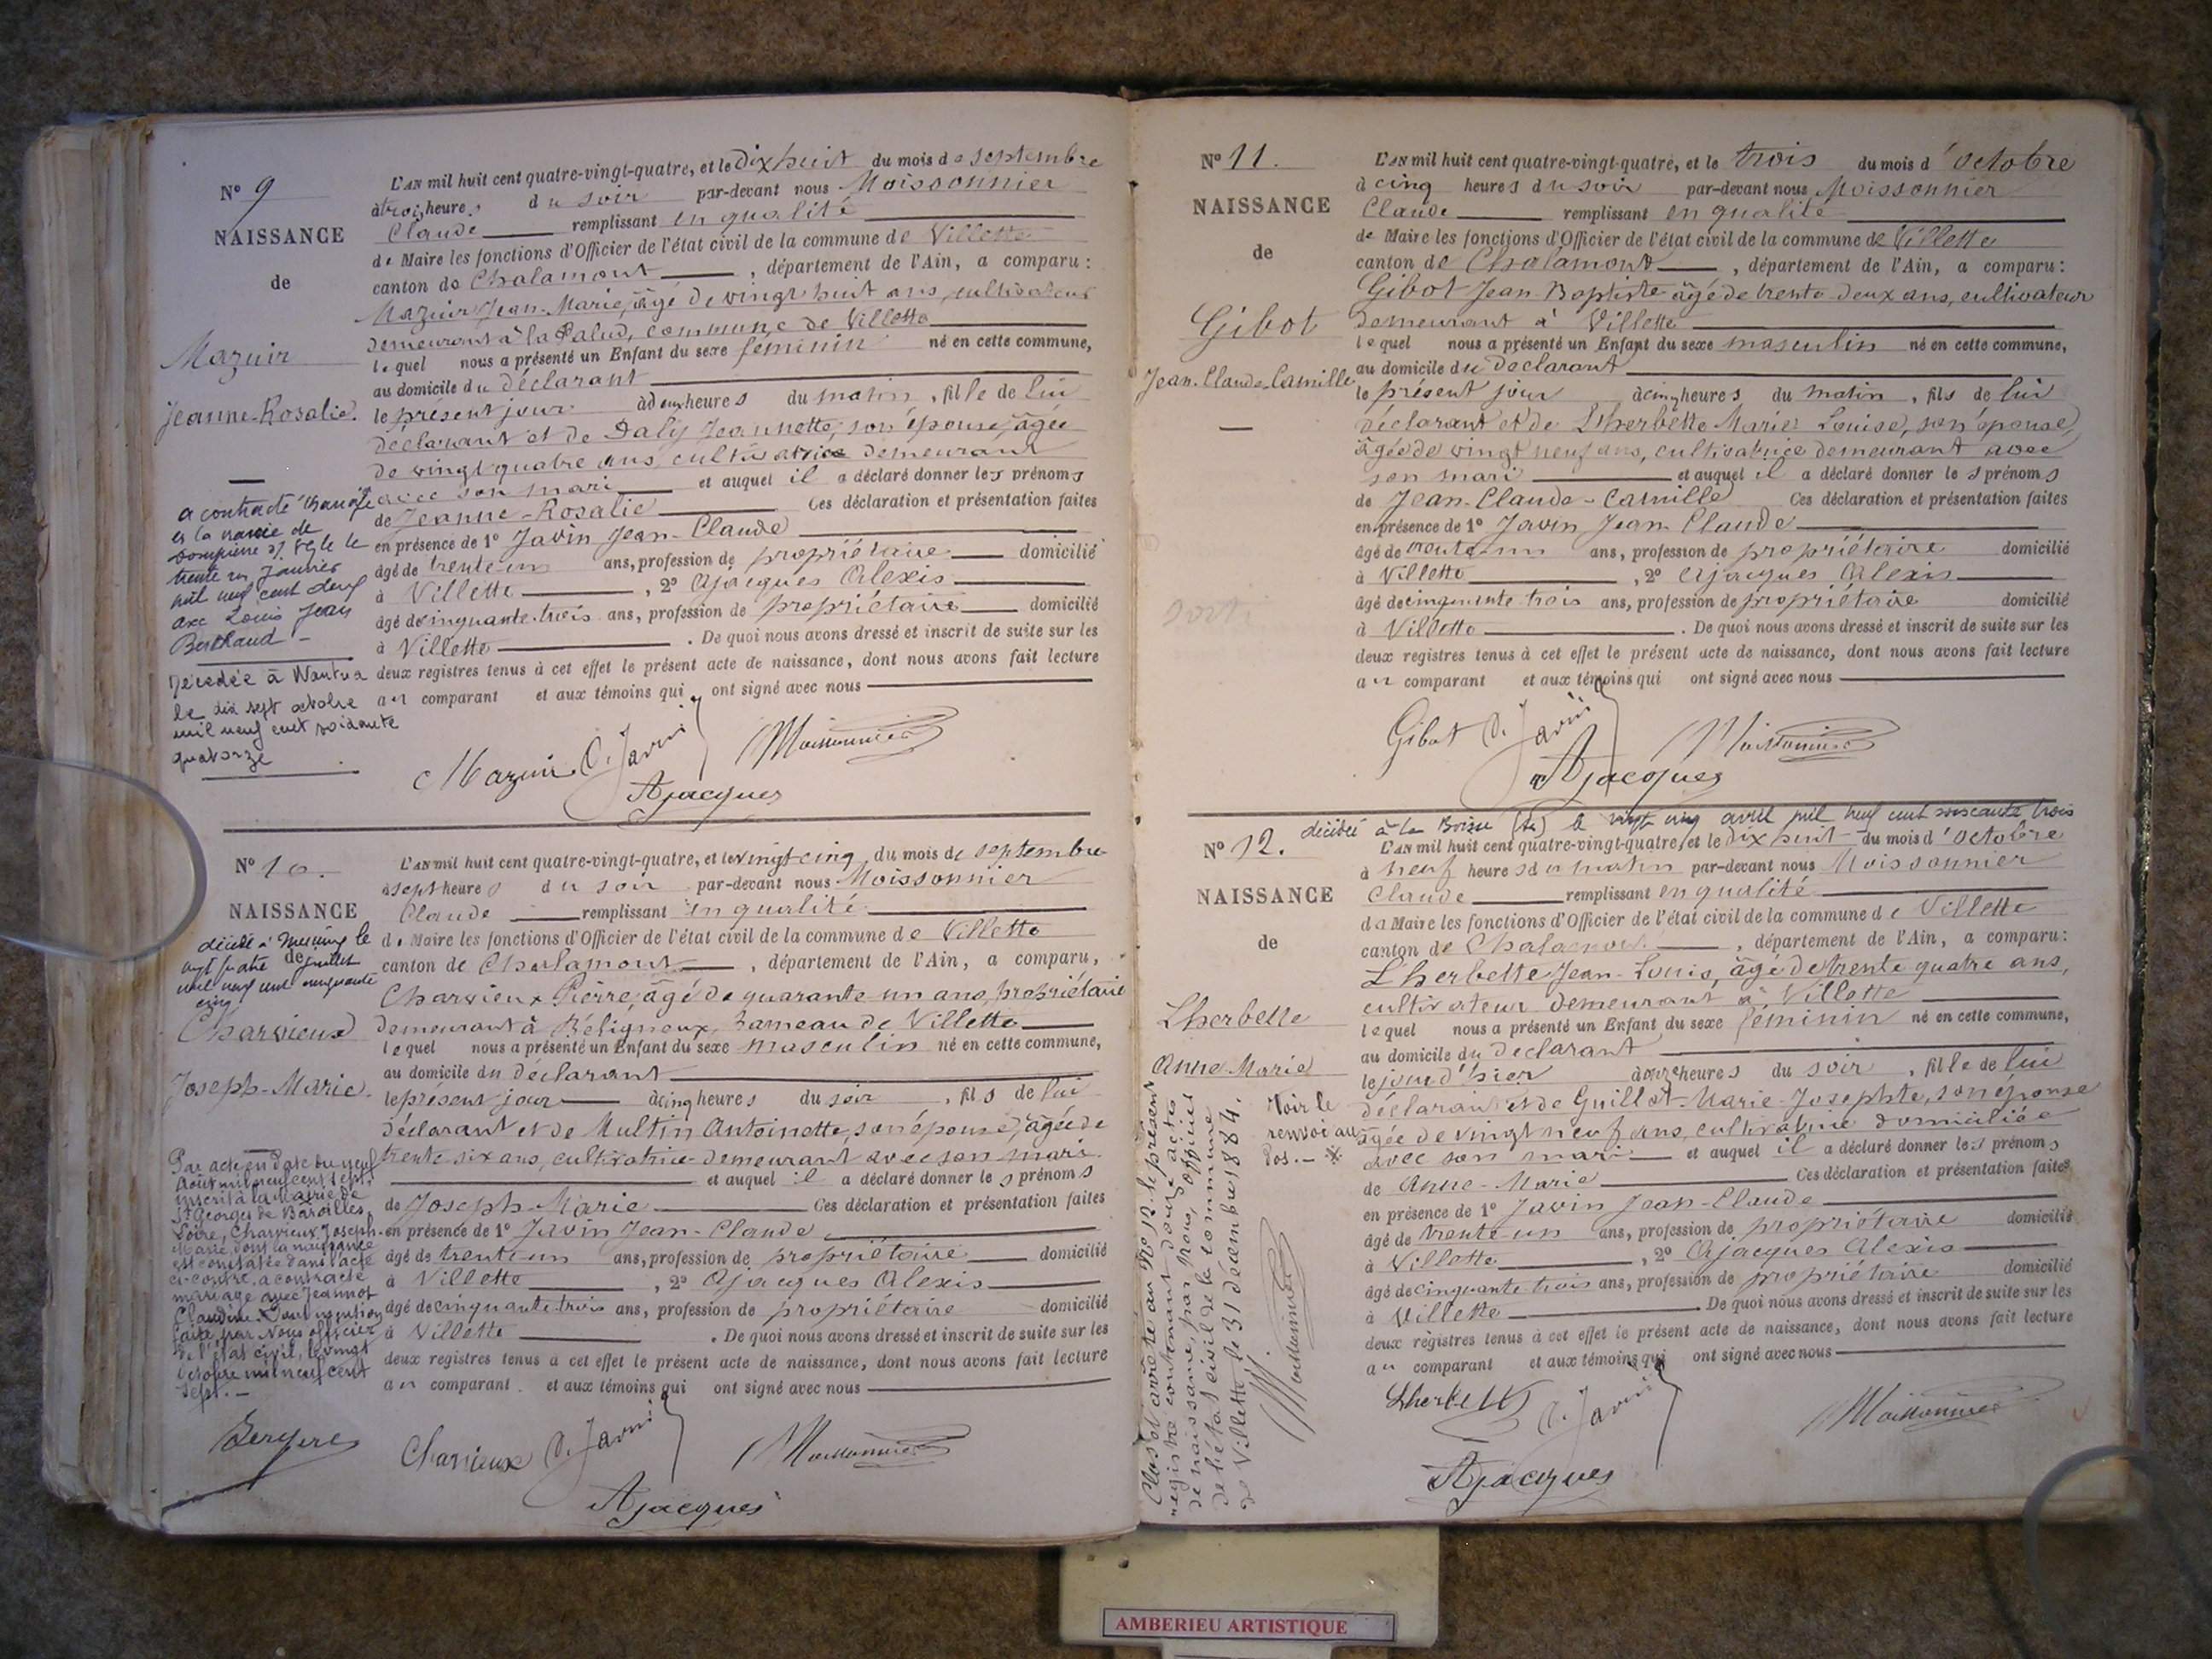 N° 9
NAISSANCE
de
Mazuir
Jeanne-Rosalie.
a contracté
en la mairie de
le
trente un Janvier
mil neuf cent
avec Louis Jean
Berthaud -
Décédée à Nantua
le dix sept octobre
mil neuf cent soixante
quatorze
L'AN mil huit cent quatre-vingt-quatre, et le dix huit du mois de septembre
à trois heures du soir par-devant nous Moissonnier
Claude remplissant en qualité
de Maire les fonctions d'Officier de l'état civil de la commune de Villette
canton de Chalamont, département de l'Ain, a comparu :
Mazuir Jean-Marie, âgé de vingt huit ans, cultivateur
demeurant à la Palud, commune de Villette
lequel nous a présenté un Enfant du sexe féminin né en cette commune,
au domicile du déclarant
le présent jour à deux heures du matin, fille de lui
déclarant et de Daly Jeannette, son épouse, âgée
de vingt quatre ans, cultivatrice demeurant
avec son mari et auquel il a déclaré donner les prénoms
de Jeanne-Rosalie Ces déclaration et présentation faites
en présence de 1° Javin Jean-Claude
âgé de trente un ans, profession de propriétaire domicilié
à Villette, 2° Ajacques Alexis
âgé de cinquante-trois ans, profession de propriétaire domicilié
à Villette. De quoi nous avons dressé et inscrit de suite sur les
deux registres tenus à cet effet le présent acte de naissance, dont nous avons fait lecture
au comparant et aux témoins qui ont signé avec nous
Mazuir C. Javin Moissonnier
Ajacques
N° 10.
NAISSANCE
de
décédé à le
vingt quatre juillet
mil neuf cent cinquante
cinq
Charvieux
Joseph-Marie.
Par acte en date du neuf
Août mil neuf cent sept
inscrit à la Mairie de
St Georges de Baroilles,
Loire, Charvieux Joseph-
Marie, dont la naissance
est constatée dans l'acte
ci-contre, a contracté
mariage avec Jeannot
Claudine. Dont mention
faite par Nous officier
de l'état civil, le vingt
octobre mil neuf cent
sept. -
L'AN mil huit cent quatre-vingt-quatre, et le vingt-cinq du mois de septembre
à sept heures du soir par-devant nous Moissonnier
Claude remplissant en qualité
de Maire les fonctions d'Officier de l'état civil de la commune de Villette
canton de Chalamont, département de l'Ain, a comparu,
Charvieux Pierre, âgé de quarante-un ans, propriétaire
demeurant à Béligneux, hameau de Villette
lequel nous a présenté un Enfant du sexe masculin né en cette commune,
au domicile du déclarant
le présent jour à cinq heures du soir, fils de lui
déclarant et de Multin Antoinette, son épouse, âgée de
trente six ans, cultivatrice demeurant avec son mari
et auquel il a déclaré donner les prénoms
de Joseph-Marie Ces déclaration et présentation faites
en présence de 1° Javin Jean-Claude
âgé de trente un ans, profession de propriétaire domicilié
à Villette, 2° Ajacques Alexis
âgé de cinquante-trois ans, profession de propriétaire domicilié
à Villette. De quoi nous avons dressé et inscrit de suite sur les
deux registres tenus à cet effet le présent acte de naissance, dont nous avons fait lecture
au comparant et aux témoins qui ont signé avec nous
Charvieux C. Javin Moissonnier
Ajacques
N° 11.
NAISSANCE
de
Gibot
Jean-Claude-Camille
L'AN mil huit cent quatre-vingt-quatre, et le trois du mois d'octobre
à cinq heures du soir par-devant nous Moissonnier
Claude remplissant en qualité
de Maire les fonctions d'Officier de l'état civil de la commune de Villette
canton de Chalamont, département de l'Ain, a comparu :
Gibot Jean-Baptiste âgé de trente-deux ans, cultivateur
demeurant à Villette
lequel nous a présenté un Enfant du sexe masculin né en cette commune,
au domicile du déclarant
le présent jour à cinq heures du matin, fils de lui
déclarant et de Lherbette Marie Louise, son épouse,
âgée de vingt neuf ans, cultivatrice demeurant avec
son mari et auquel il a déclaré donner les prénoms
de Jean-Claude-Camille Ces déclaration et présentation faites
en présence de 1° Javin Jean-Claude
âgé de trente-un ans, profession de propriétaire domicilié
à Villette, 2° Ajacques Alexis
âgé de cinquante trois ans, profession de propriétaire domicilié
à Villette. De quoi nous avons dressé et inscrit de suite sur les
deux registres tenus à cet effet le présent acte de naissance, dont nous avons fait lecture
au comparant et aux témoins qui ont signé avec nous
Gibot C. Javin Moissonnier
Ajacques
décédée à la Boisse (Ain) le vingt cinq avril mil neuf cent soixante trois
N° 12.
NAISSANCE
de
Lherbette
Anne Marie
Voir le
renvoi au
bas. -
L'AN mil huit cent quatre-vingt-quatre, et le dix huit du mois d'octobre
à neuf heures du matin par-devant nous Moissonnier
Claude remplissant en qualité
de Maire les fonctions d'Officier de l'état civil de la commune de Villette
canton de Chalamont, département de l'Ain, a comparu :
Lherbette Jean-Louis, âgé de trente quatre ans,
cultivateur demeurant à Villette
lequel nous a présenté un Enfant du sexe féminin né en cette commune,
au domicile du déclarant
le jour d'hier à onze heures du soir, fille de lui
déclarant et de Guillot Marie-Josephte, son épouse
âgée de vingt neuf ans, cultivatrice domiciliée
avec son mari et auquel il a déclaré donner les prénoms
de Anne-Marie Ces déclaration et présentation faites
en présence de 1° Javin Jean-Claude
âgé de trente-un ans, profession de propriétaire domicilié
à Villette, 2° Ajacques Alexis
âgé de cinquante trois ans, profession de propriétaire domicilié
à Villette. De quoi nous avons dressé et inscrit de suite sur les
deux registres tenus à cet effet le présent acte de naissance, dont nous avons fait lecture
au comparant et aux témoins qui ont signé avec nous
Lherbette C. Javin Moissonnier
Ajacques
Clos et arrêté au N° 12 le présent
registre contenant douze actes
de naissance, par Nous, officier
de l'état civil de la commune
de Villette le 31 décembre 1884.
Moissonnier
AMBERIEU ARTISTIQUE